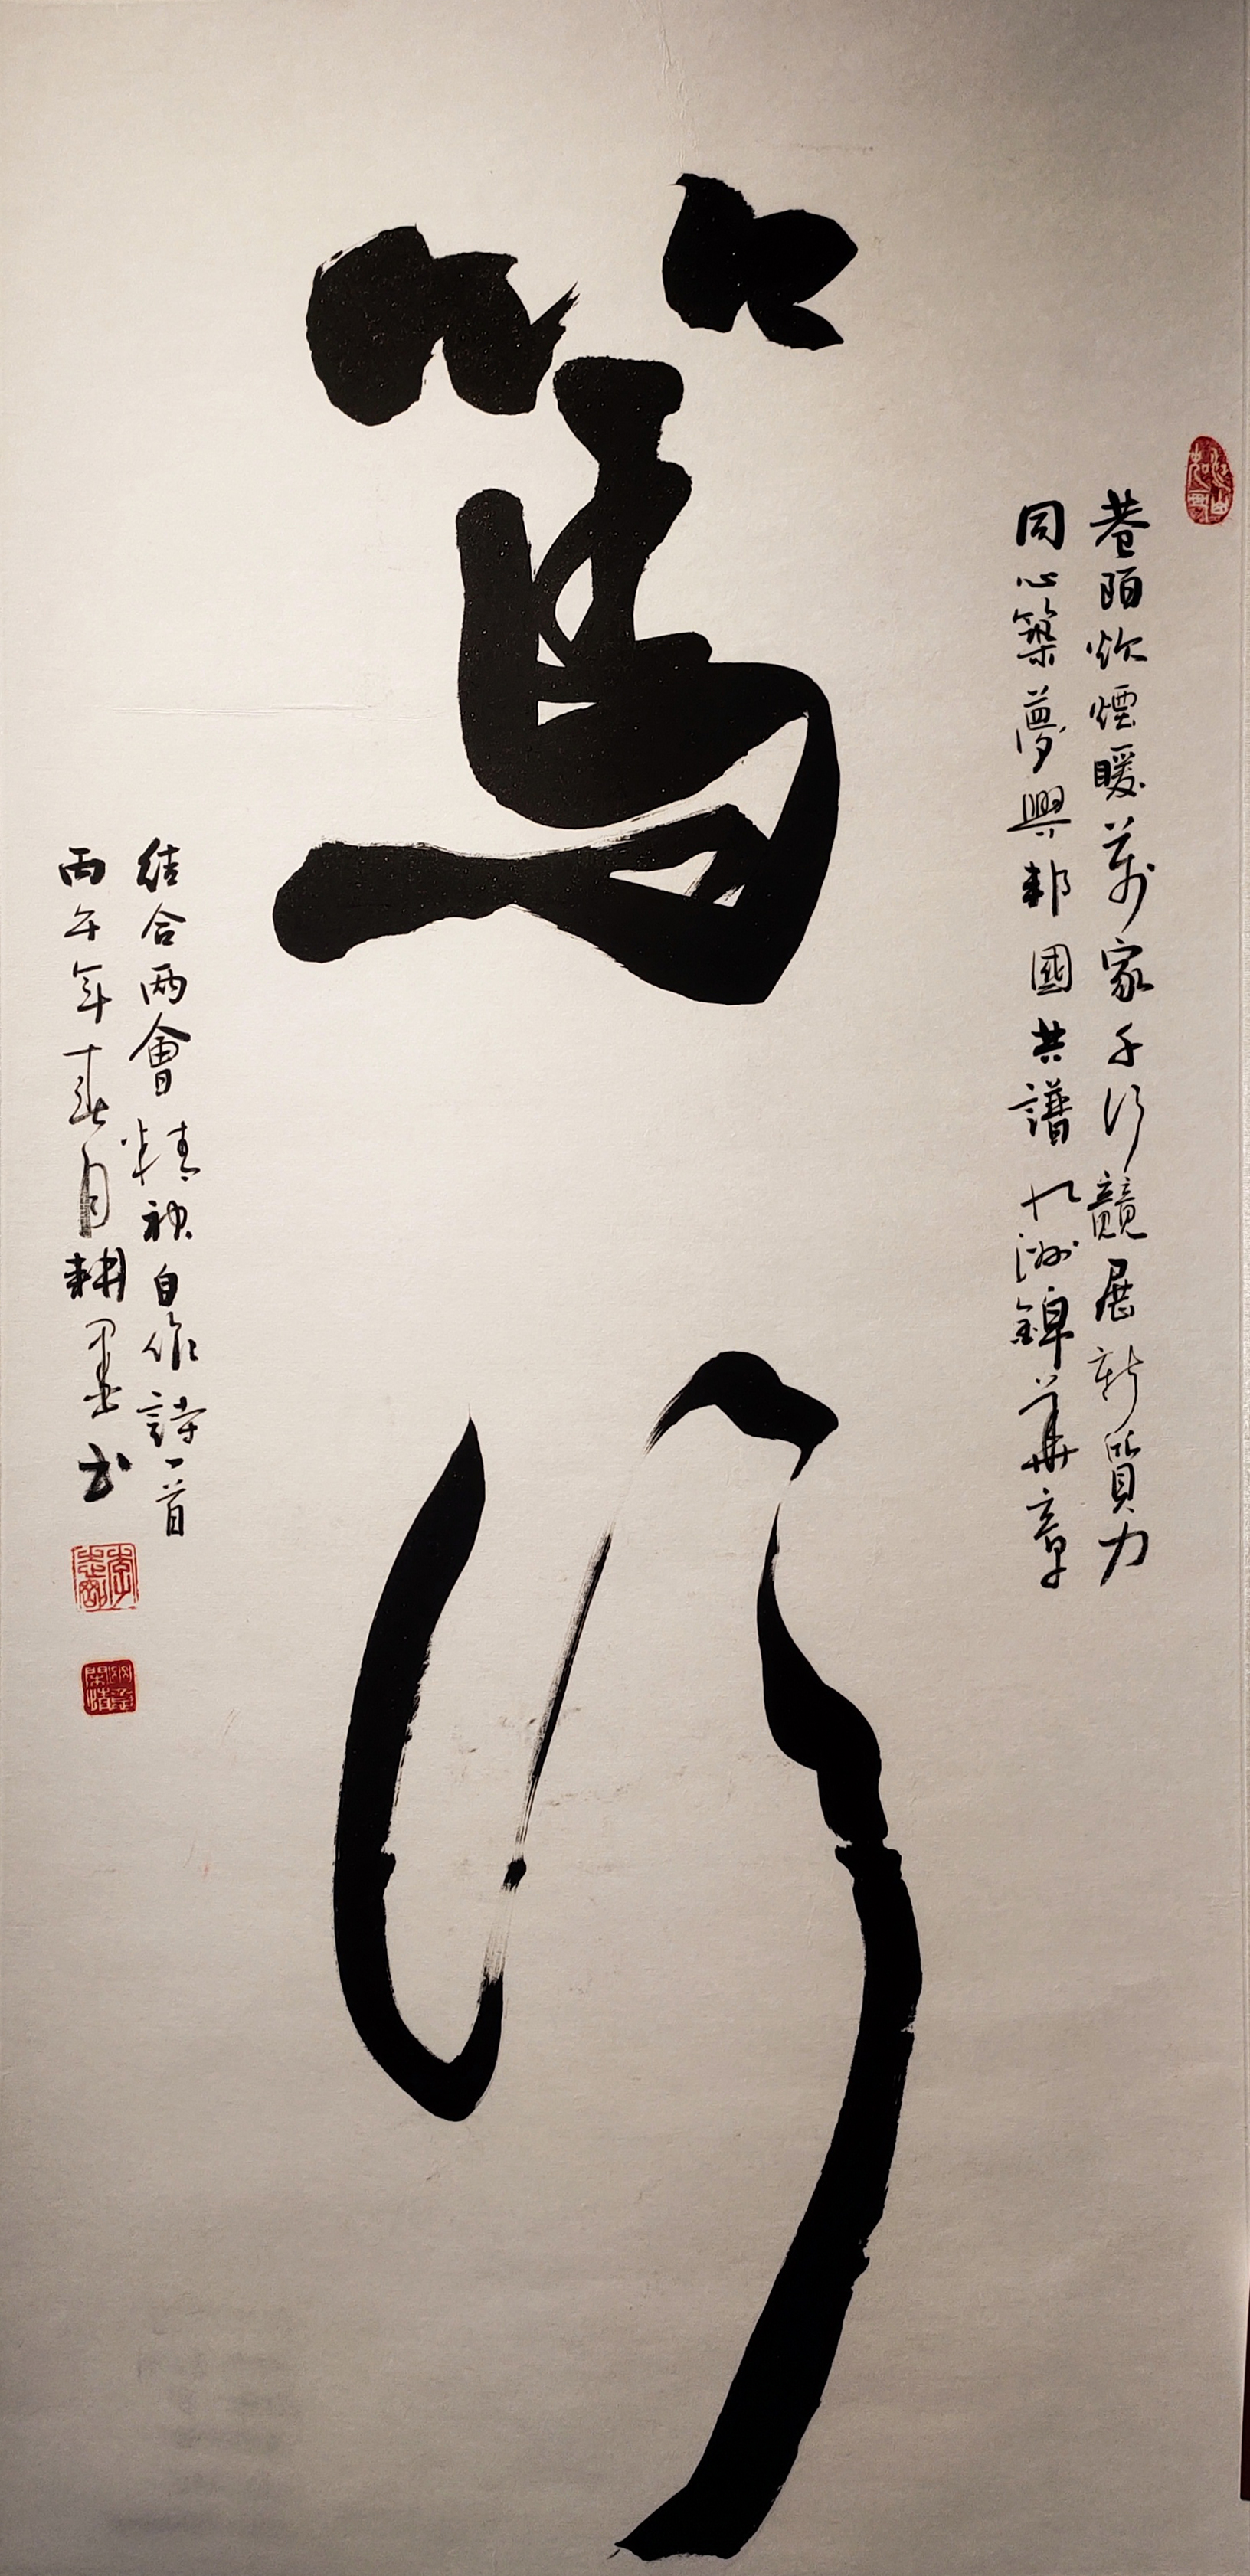 篤行
巷陌炊煙暖萬家千行競展新質力
同心築夢興邦國共譜九洲錦華章
結合兩會精神自作詩一首
丙午年春月耕墨書